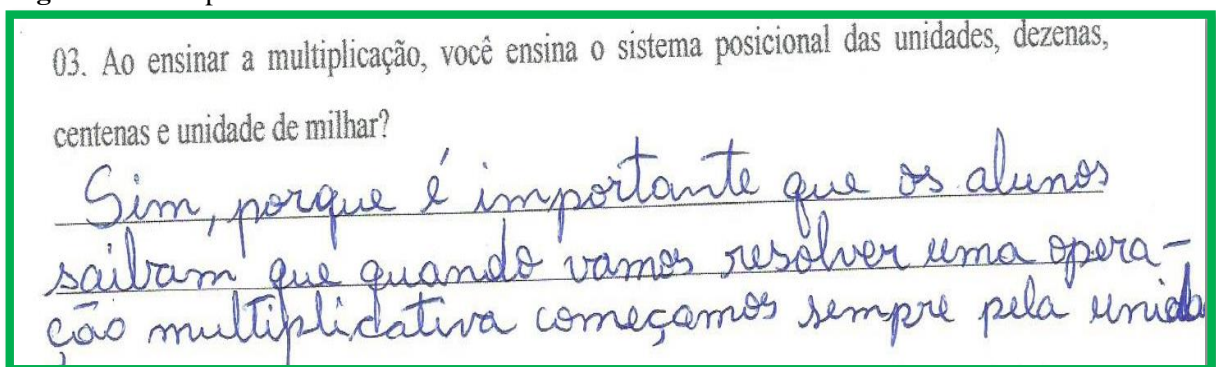 03. Ao ensinar a multiplicação, você ensina o sistema posicional das unidades, dezenas,
centenas e unidade de milhar?
Sim, porque é importante que os alunos
saibam que quando vamos resolver uma opera-
ção multiplicativa começamos sempre pela unida